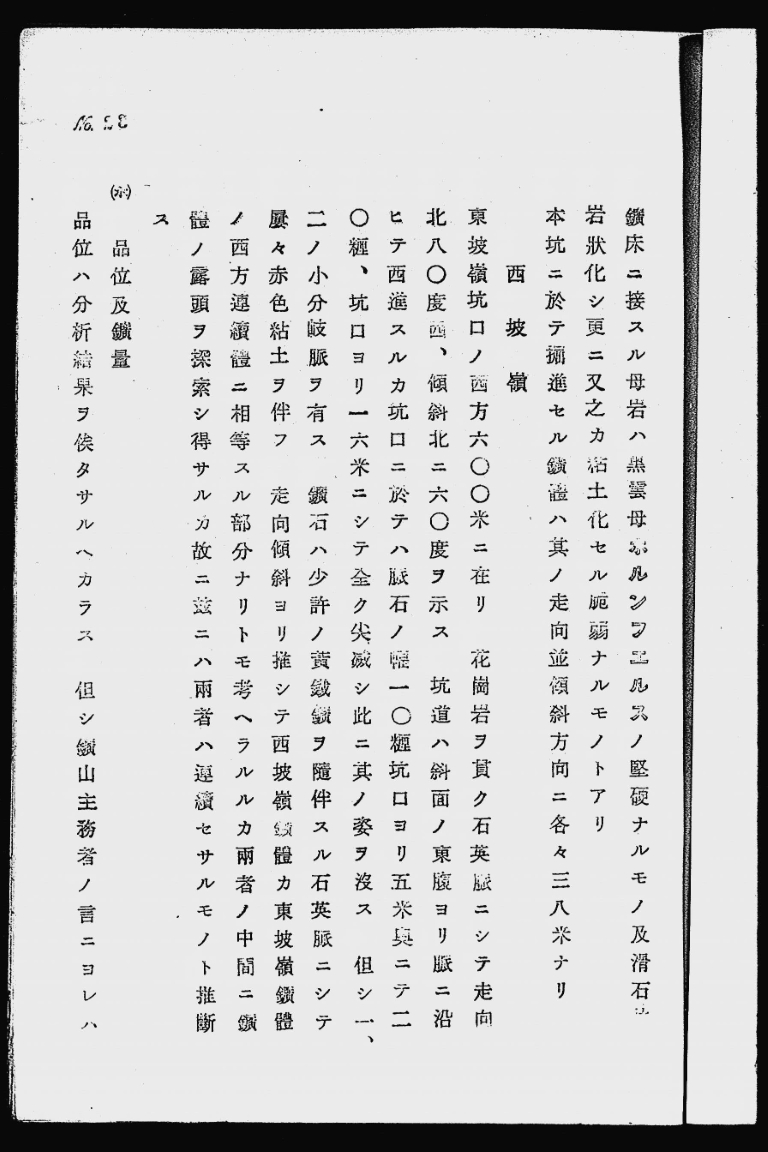 No. 23
鑛床ニ接スル母岩ハ黒雲母ホルンフエルスノ堅硬ナルモノ及滑石
岩狀化シ更ニ又之カ粘土化セル脆弱ナルモノトアリ
本坑ニ於テ掘進セル鑛體ハ其ノ走向並傾斜方向ニ各々三八米ナリ
西坡嶺
東坡嶺坑口ノ西方六〇〇米ニ在リ 花崗岩ヲ貫ク石英脈ニシテ走向
北八〇度西、傾斜北ニ六〇度ヲ示ス 坑道ハ斜面ノ東腹ヨリ脈ニ沿
ヒテ西進スルカ坑口ニ於テハ脈石ノ幅一〇糎坑口ヨリ五米奥ニテ二
〇糎、坑口ヨリ一六米ニシテ全ク尖滅シ此ニ其ノ姿ヲ沒ス 但シ一、
二ノ小分岐脈ヲ有ス 鑛石ハ少許ノ黄鐵鑛ヲ隨伴スル石英脈ニシテ
屡々赤色粘土ヲ伴フ 走向傾斜ヨリ推シテ西坡嶺鑛體カ東坡嶺鑛體
ノ西方連續體ニ相等スル部分ナリトモ考ヘラルルカ兩者ノ中間ニ鑛
體ノ露頭ヲ探索シ得サルカ故ニ茲ニハ兩者ハ連續セサルモノト推斷
ス
(ホ) 品位及鑛量
品位ハ分析結果ヲ俟タサルヘカラス 但シ鑛山主務者ノ言ニヨレハ